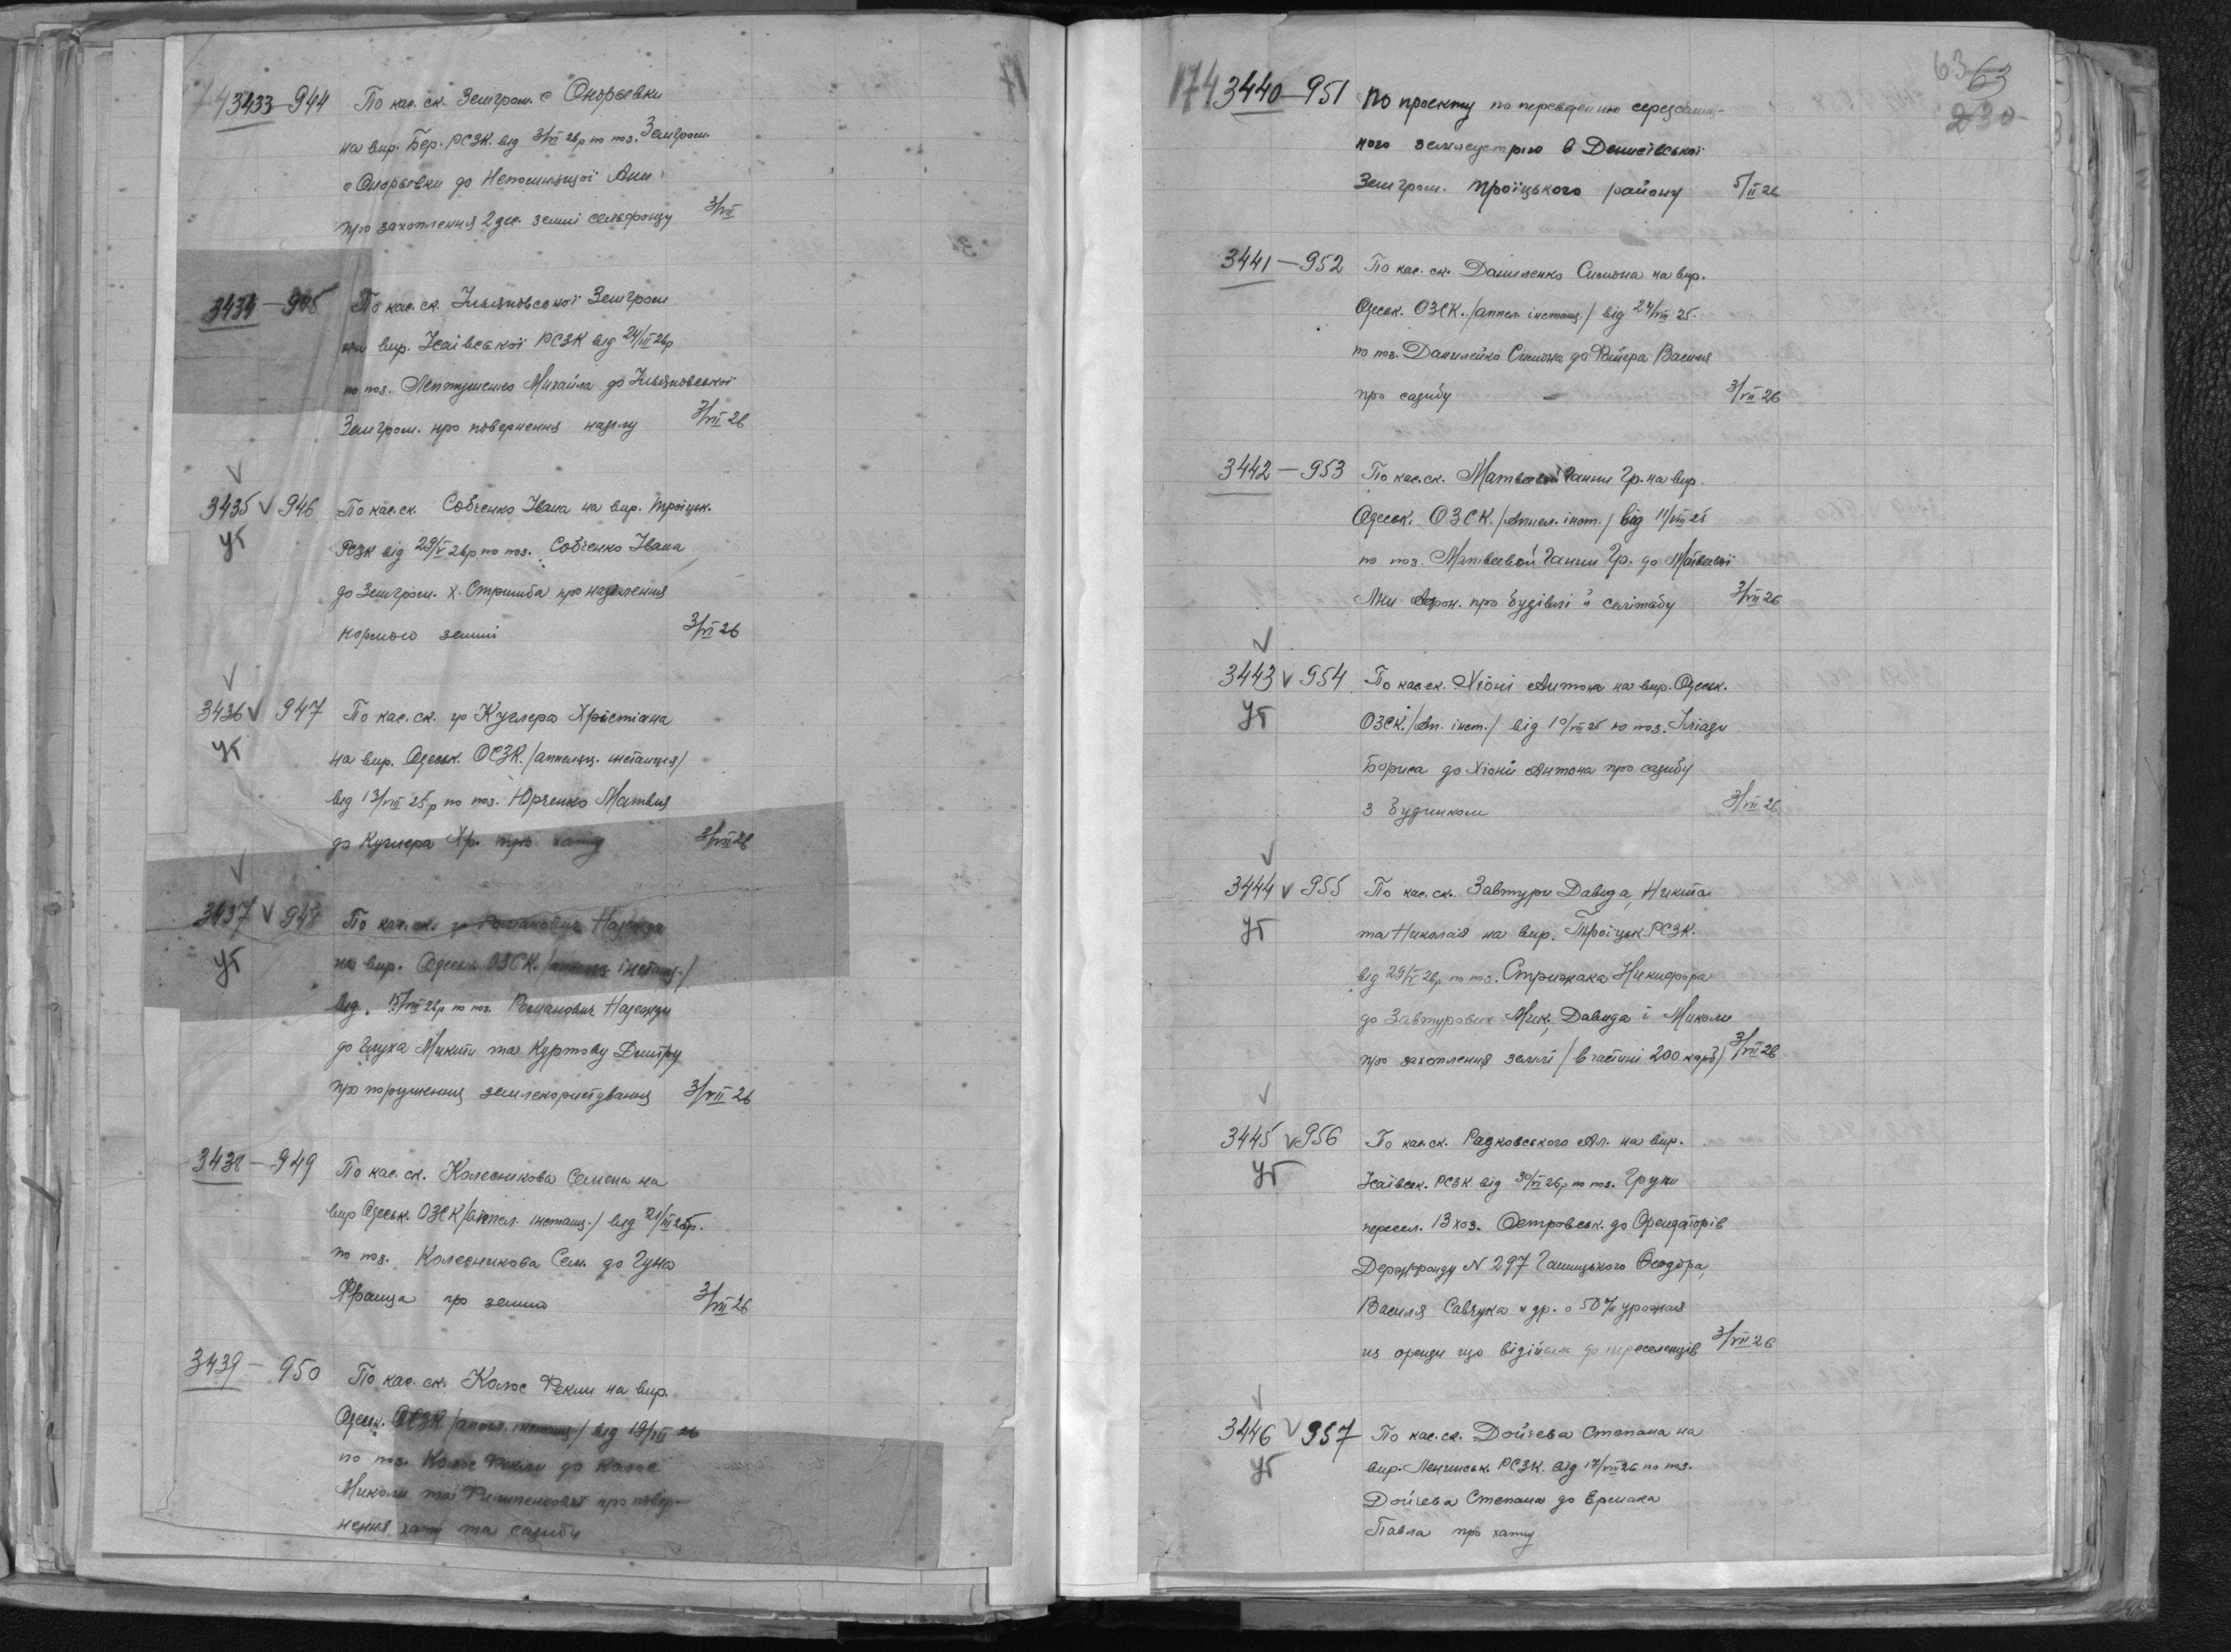 3433 — 944 По кас. ск. Земгром. с Онорьевки
на вир. Бер. РСЗК. від 3/VI 26р по поз.Земгром.
с Онорьевки до Непомнящої Анн
про захоплення 2 дес. землі сельфонду 3/VII
3434 — 945 По кас. ск. Ульяновської Земгром
на вир. Ісаівської РСЗК від 24/III 26р
по поз. Михайла до Ульяновської
Земгром. про повернення наділу 3/VII 26
3435 v 946 По кас. ск. Собченко Івана на вир. Троіцьк.
УТ РСЗК від 29/V 26р по поз. Собченко Івана
до Земгром. х. Стримба про наділення
нормою землі 3/VII 26
3436 v 947 По кас. ск. гр Куглера Християна
УТ на вир. Одеськ. ОСЗК. /аппеляц. інстанція/
від 13/VIII 25р по поз. Юрченко Матвія
до Куглера Хр. про хату 3/VII 26
3437 v 948 По кас. ск. гр Романович Надежди
УТ на вир. Одеськ. ОЗСК. /аппеляц. інстанц./
від 15/VIII 26р по поз. Романович Надежди
до Глуха Микити та Куртову Дмитру
про порушення землекористування 3/VII 26
3438 — 949 По кас. ск. Колесникова Семена на
вир Одеськ. ОЗСК /аппел. інстанц./ від 21/III 25р.
по поз. Колесникова Сем. до Гуна
Франца про землю 3/VII 26
3439 — 950 По кас. ск. Колос Фекли на вир.
Одеськ. ОСЗК /аппел. інстанц/ від 19/III 26
по поз. Колос Фекли до Колос
Миколи та про повер-
нення хати та садиби
174 3440 — 951 По проекту по переведенню середселищ-
63 63
230
ного землеустрою в Денисівської
Земгром. Троїцького району 5/II 26
3441 — 952 По кас. ск. Даниленко Симона на вир.
Одеськ. ОЗСК. /аппел. інстанц./ від 24/VIII 25.
по поз. Даниленко Симона до Василя
про садибу — 3/VII 26
3442 — 953 По кас. ск. Матвеевой Ганни Гр. на вир.
Одеськ. ОЗСК. /Аппел. інст./ від 11/VIII 25
по поз. Матвеевой Ганни Гр. до Матвеевої
про будівлі и салітабу 3/VII 26
3443 v 954 По кас. ск. Хіоні Антона на вир. Одеськ.
УТ ОЗСК. /Ап. інст./ від 10/VIII 25 по поз. Іліади
Бориса до Хіоні Антона про садибу
з будинком 3/VII 26
3444 v 955 По кас. ск. Завтури Давида, Никита
УТ та Николая на вир. Троїцьк. РСЗК.
від 29/V 26р по поз. Стрижака Никифора
до Завтурових Мик., Давида і Миколи
про захоплення землі /в частині 200 карб/ 3/VII 26
3445 v 956 По кас. ск. Радковського Ал. на вир.
УТ Ісаівськ. РСЗК від 30/VI 26р по поз. Групи
пересел. 13 хоз. Островськ. до Орендаторів
Держфонду N 297 Галицького Феодора,
Василя Савчука и др. о 50% урожая
из оренди що відійшла до переселенців 3/VII 26
3446 v 957 По кас. ск. Дойчева Степана на
УТ вир. Ленинськ. РСЗК. від 17/VIII 26 по поз.
Дойчева Степана до Ермака
Павла про хату